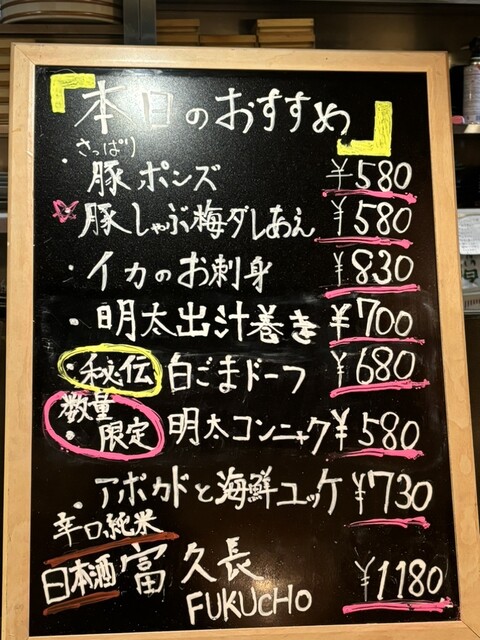 「本日のおすすめ」
さっぱり
・豚ポンズ ¥580
豚しゃぶ梅ダレあえ ¥580
・イカのお刺身 ¥830
・明太出汁巻き ¥700
・秘伝 白ごまドーフ ¥680
数量
・限定 明太コンニャク ¥580
・アボカドと海鮮ユッケ ¥730
辛口純米
日本酒 富久長 ¥1180
FUKUCHO